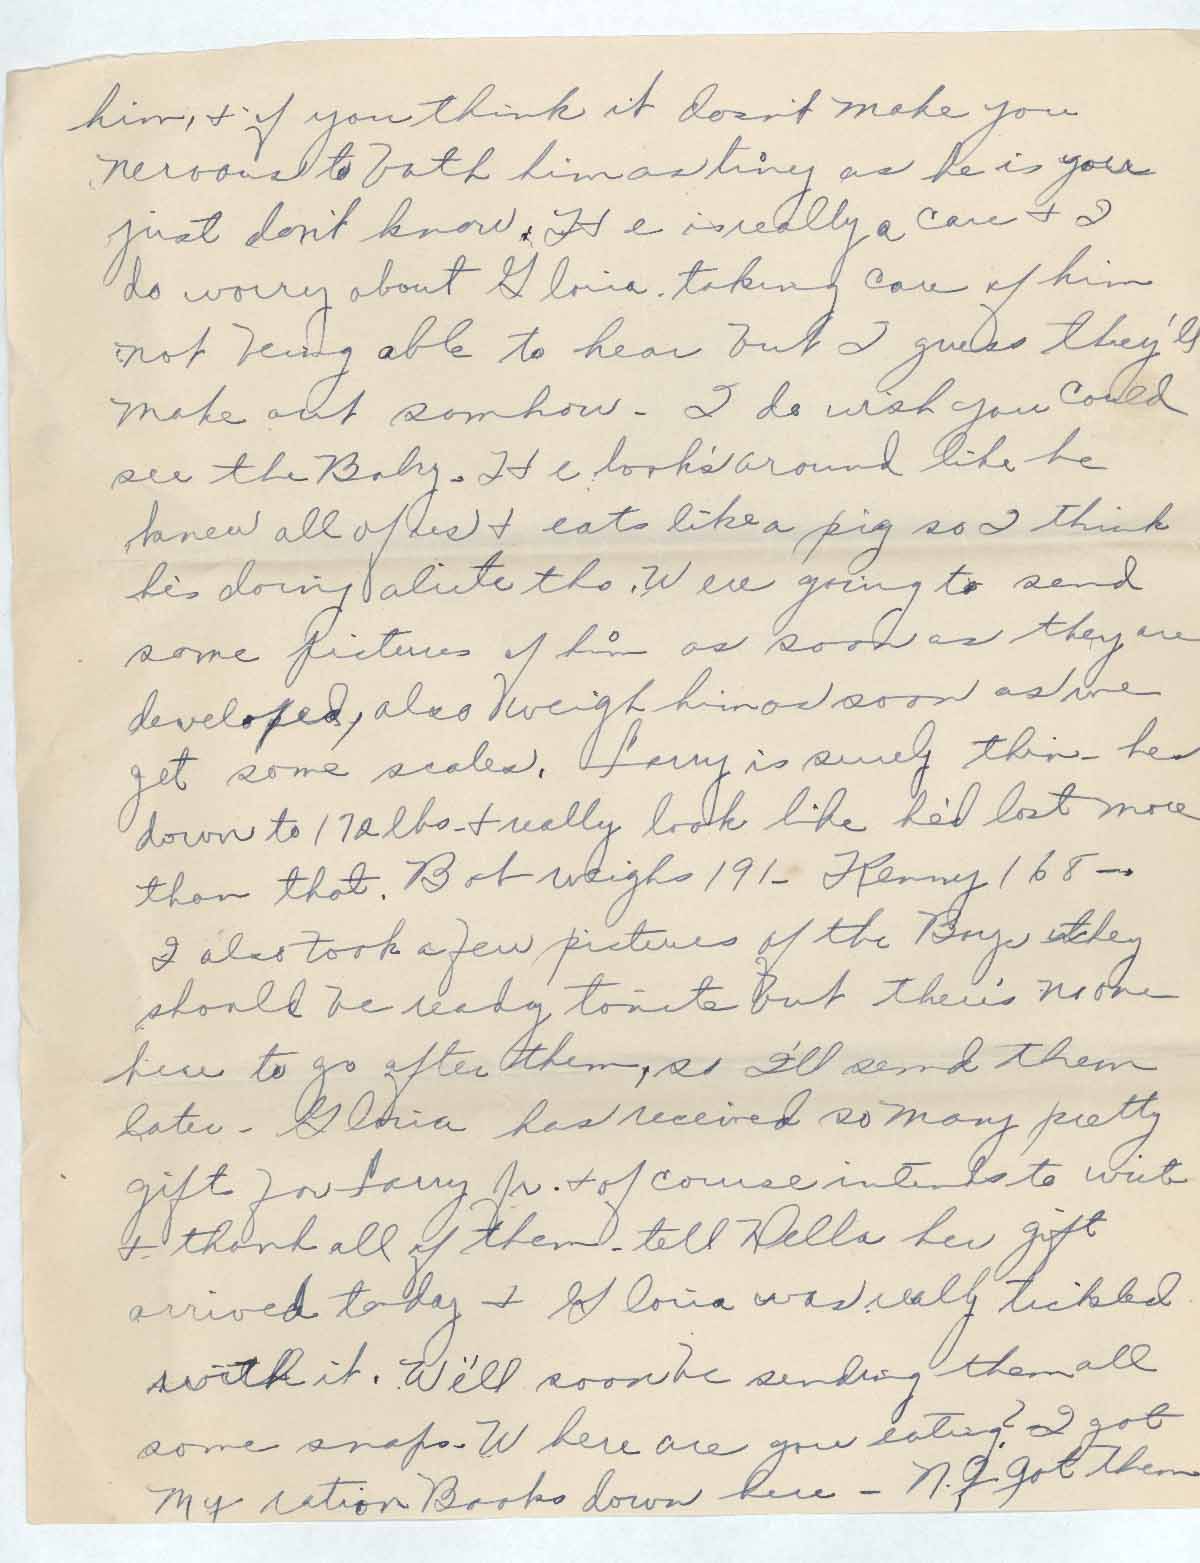 him, & if you think it dosn't make you
nervous to bath him as tiny as he is your
just don't know. He is really a care & I
do worry about Gloria. taking care of him
not being able to hear but I guess they'll
make out somhow - I do wish you could
see the Baby. He look's around like he
knew all of us & eats like a pig so I think
he's doing alrite tho. Were going to send
some pictures of him as soon as they are
developed, also weigh him as soon as we
get some scales. Larry is surely thin - hes
down to 172 lbs - & really look like he'd lost more
than that. Bob weighs 191 - Kenny 168 -
I also took a few pictures of the Boys & they
should be ready tonite but there's no one
here to go after them, so I'll send them
later - Gloria has received so many pretty
gift for Larry Jr. & of course intends to write
& thank all of them - tell Della her gift
arrived today & Gloria was really tickled
with it. We'll soon be sending them all
some snaps. Where are you eating? I got
My ration Books down here - got them